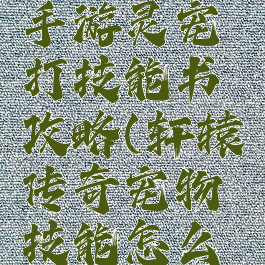 手游灵宠
打技能书
攻略(轩辕
传奇宠物
技能怎么